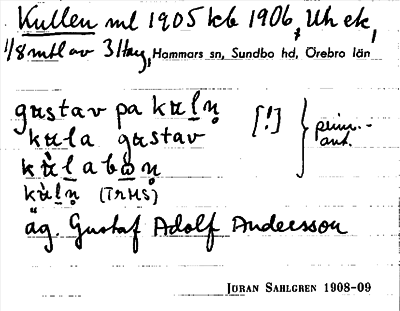 Kullen ml 1905 kb 1906, Uh ek,
1/8 mtl av 3 Hag, Hammars sn, Sundbo hd, Örebro län
gustav pa kuln̥ [!] } prim.-
kula gustav ant.
kùlabωn̥
kùln̥ (TrHS)
äg. Gustaf Adolf Andersson
JURAN SAHLGREN 1908-09